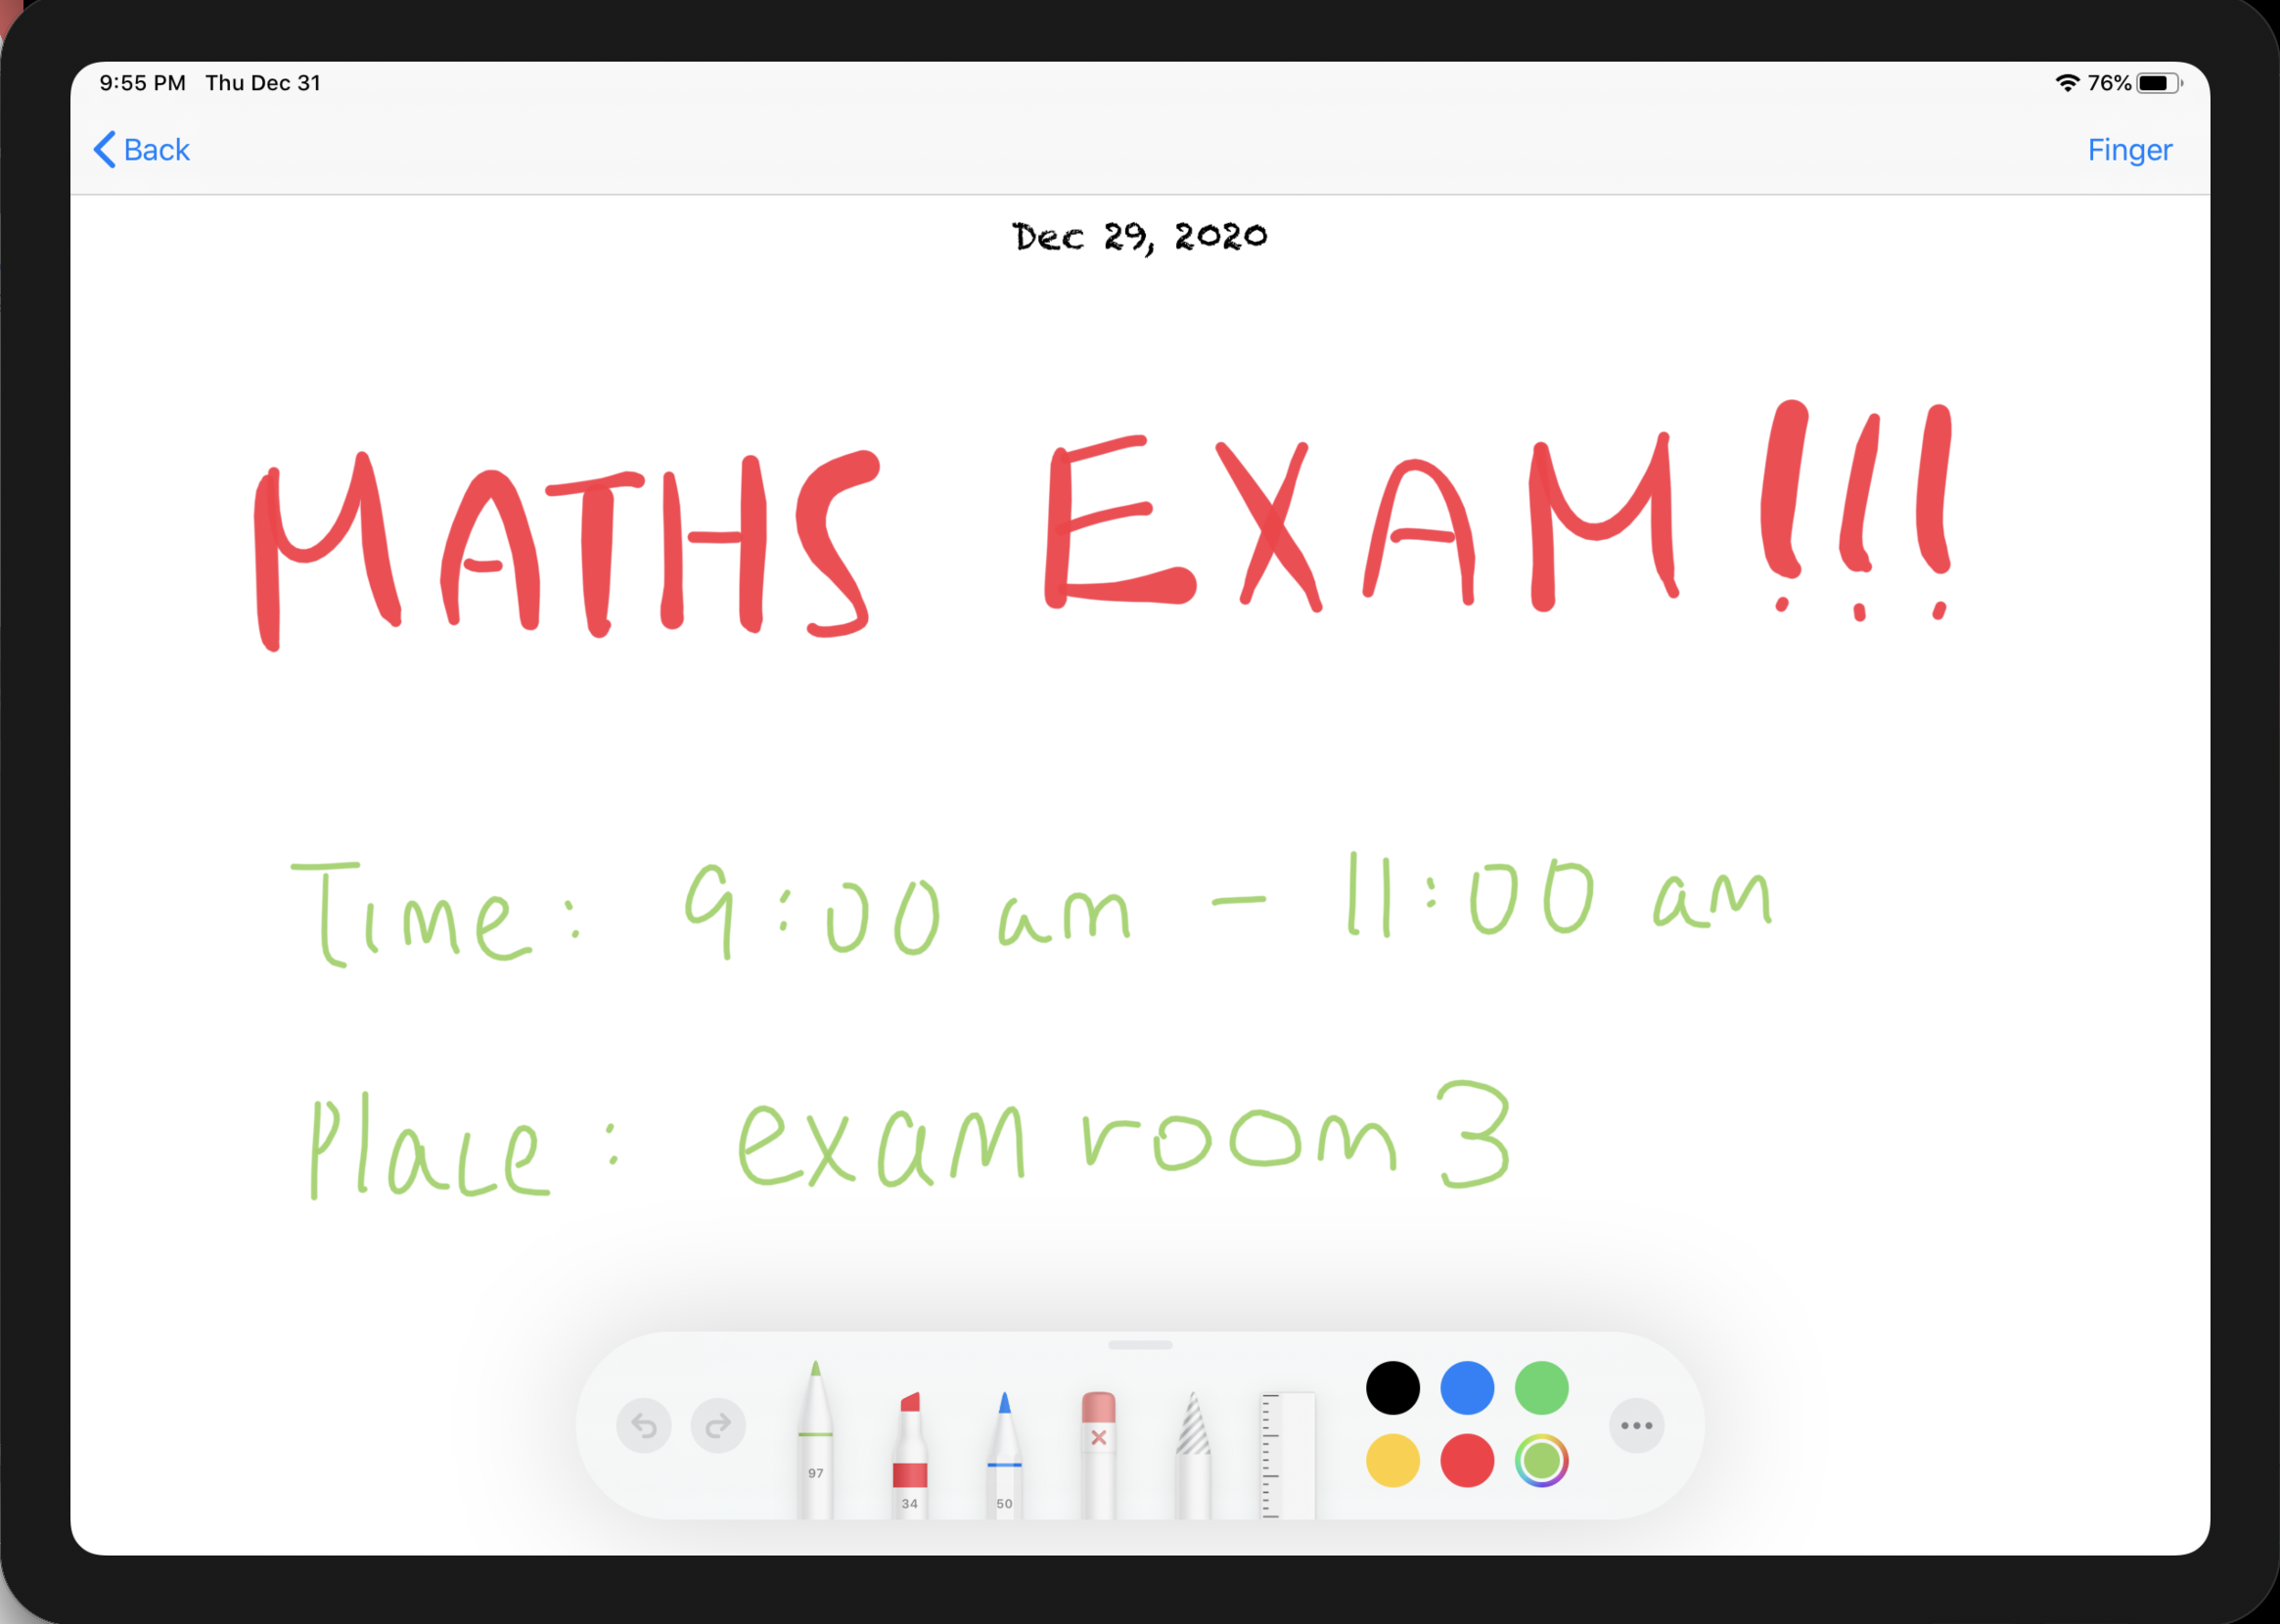 9:55 PM Thu Dec 31 76%
Back Finger
Dec 29, 2020
MATHS EXAM!!!
Time: 9:00 am - 11:00 am
Place: exam room 3
97 34 50